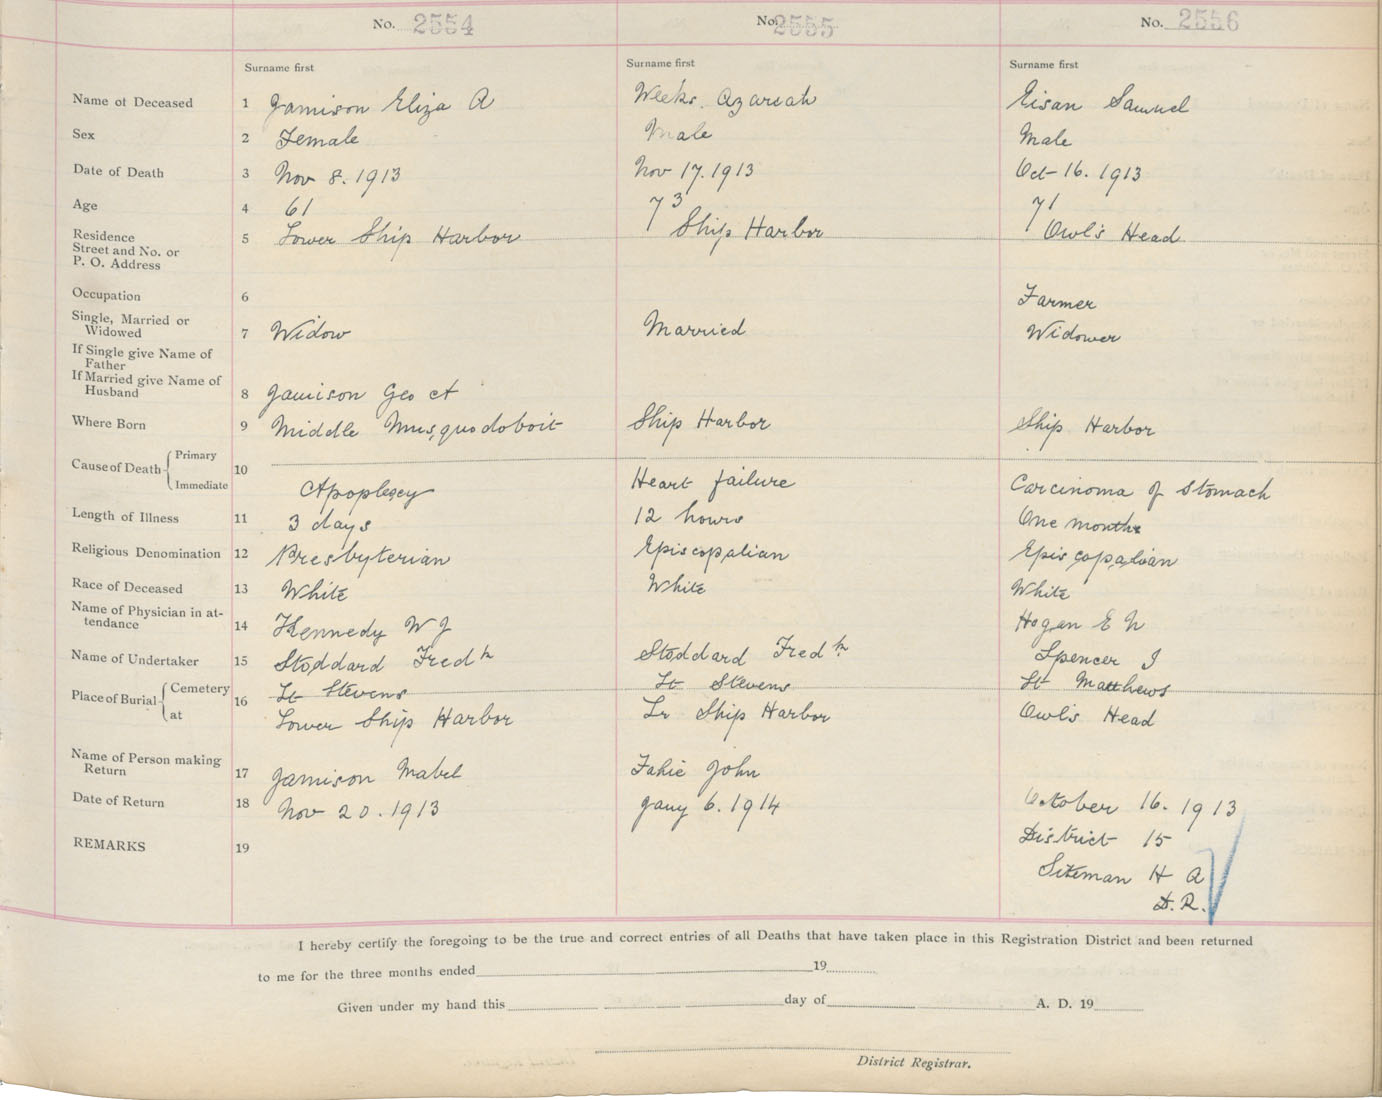 No. 2554 No. 2555 No. 2556
Surname first Surname first Surname first
Name of Deceased 1 Jamison Eliza A Weeks. Azariah Eisan Samuel
Sex 2 Female Male Male
Date of Death 3 Nov 8. 1913 Nov 17. 1913 Oct 16. 1913
Age 4 61 73 71
Residence Street and No. or P. O. Address 5 Lower Ship Harbor Ship Harbor Owl's Head
Occupation 6 Farmer
Single, Married or Widowed 7 Widow Married Widower
If Single give Name of Father
If Married give Name of Husband 8 Jamison Geo A
Where Born 9 Middle Musquodoboit Ship Harbor Ship Harbor
Cause of Death Primary Immediate 10 Apoplexy Heart failure Carcinoma of Stomach
Length of Illness 11 3 days 12 hours One month
Religious Denomination 12 Presbyterian Episcopalian Episcopalian
Race of Deceased 13 White White White
Name of Physician in attendance 14 Kennedy W J Hogan E N
Name of Undertaker 15 Stoddard Fredk Stoddard Fredk Spencer I
Place of Burial Cemetery 16 St Stevens St Stevens St Matthews
at Lower Ship Harbor Lr Ship Harbor Owl's Head
Name of Person making Return 17 Jamison Mabel Fahie John
Date of Return 18 Nov 20. 1913 Jany 6. 1914 October 16. 1913
REMARKS 19 District 15
Siteman H A
D. R.
I hereby certify the foregoing to be the true and correct entries of all Deaths that have taken place in this Registration District and been returned
to me for the three months ended 19
Given under my hand this day of A. D. 19
District Registrar.